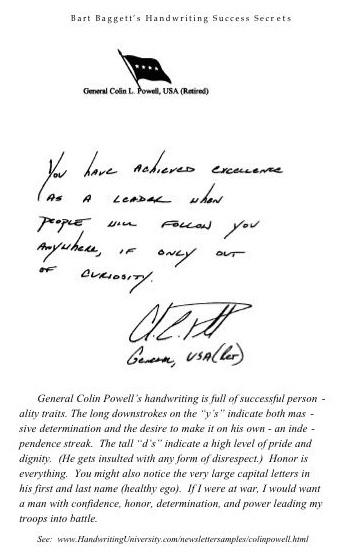 Bart Baggett's Handwriting Success Secrets
General Colin L. Powell, USA (Retired)
You have achieved excellence
as a leader when
people will follow you
anywhere, if only out
of curiosity.
General, USA (Ret)
General Colin Powell's handwriting is full of successful person -
ality traits. The long downstrokes on the "y's" indicate both mas -
sive determination and the desire to make it on his own - an inde -
pendence streak. The tall "d's" indicate a high level of pride and
dignity. (He gets insulted with any form of disrespect.) Honor is
everything. You might also notice the very large capital letters in
his first and last name (healthy ego). If I were at war, I would want
a man with confidence, honor, determination, and power leading my
troops into battle.
See: www.HandwritingUniversity.com/newslettersamples/colinpowell.html